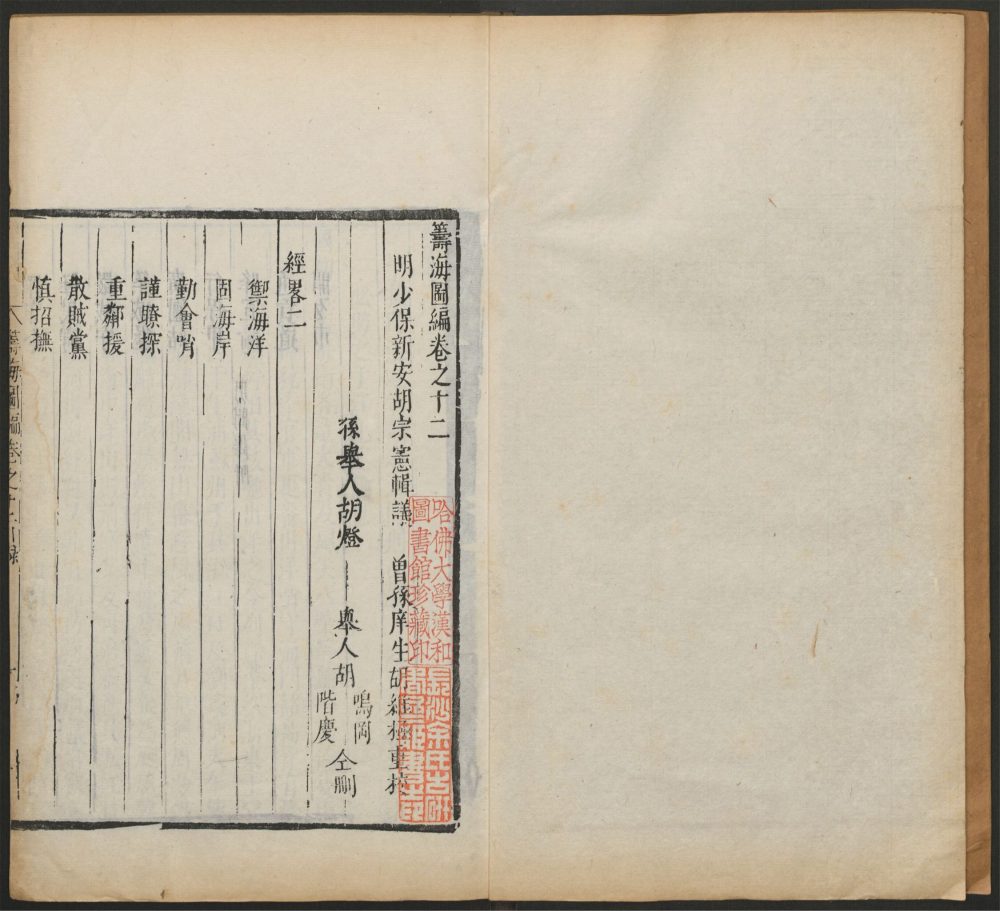 籌海圖編卷之十二
明少保新安胡宗憲輯議 曾孫庠生胡維極重校
孫舉人胡燈 舉人胡
鳴岡
階慶
仝刪
經畧二
禦海洋
固海岸
勤會哨
謹瞭探
重鄰援
散賊黨
慎招撫
籌海圖編卷之十二目錄
哈佛大學漢和
圖書館珍藏印
長沙余氏